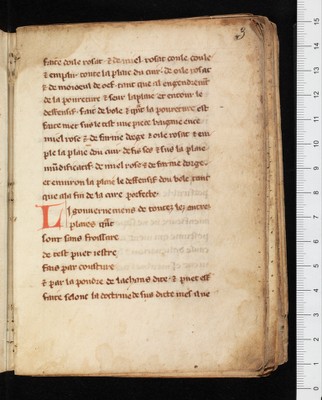 3
faire coile rosat & de miel rosat coule coule
& emplir toute la plaie du cuir de oile rosat
& de moieul de oef tant que il engendrent
de la pourreture & seur la plaie et entour le
deffensif fait de bole & quant la pourreture est
faite met sus le test une piece baignie en
miel rose de farine dorge & oile rosat & em
ple la plaie dou cuir de sis & sus la plaie
mudificatif de miel rose & de farine dorge
et environ la plaie le deffensif dou bole tant
que a la fin de la cure parfecte
LI gouvernemens de toutes les autres
plaies qui
sont sans froissure
de test puet iestre
fais par cousture
& par la poudre de la chaus dite & puet est
faite selonc la doctrine de sus dicte mes il ne